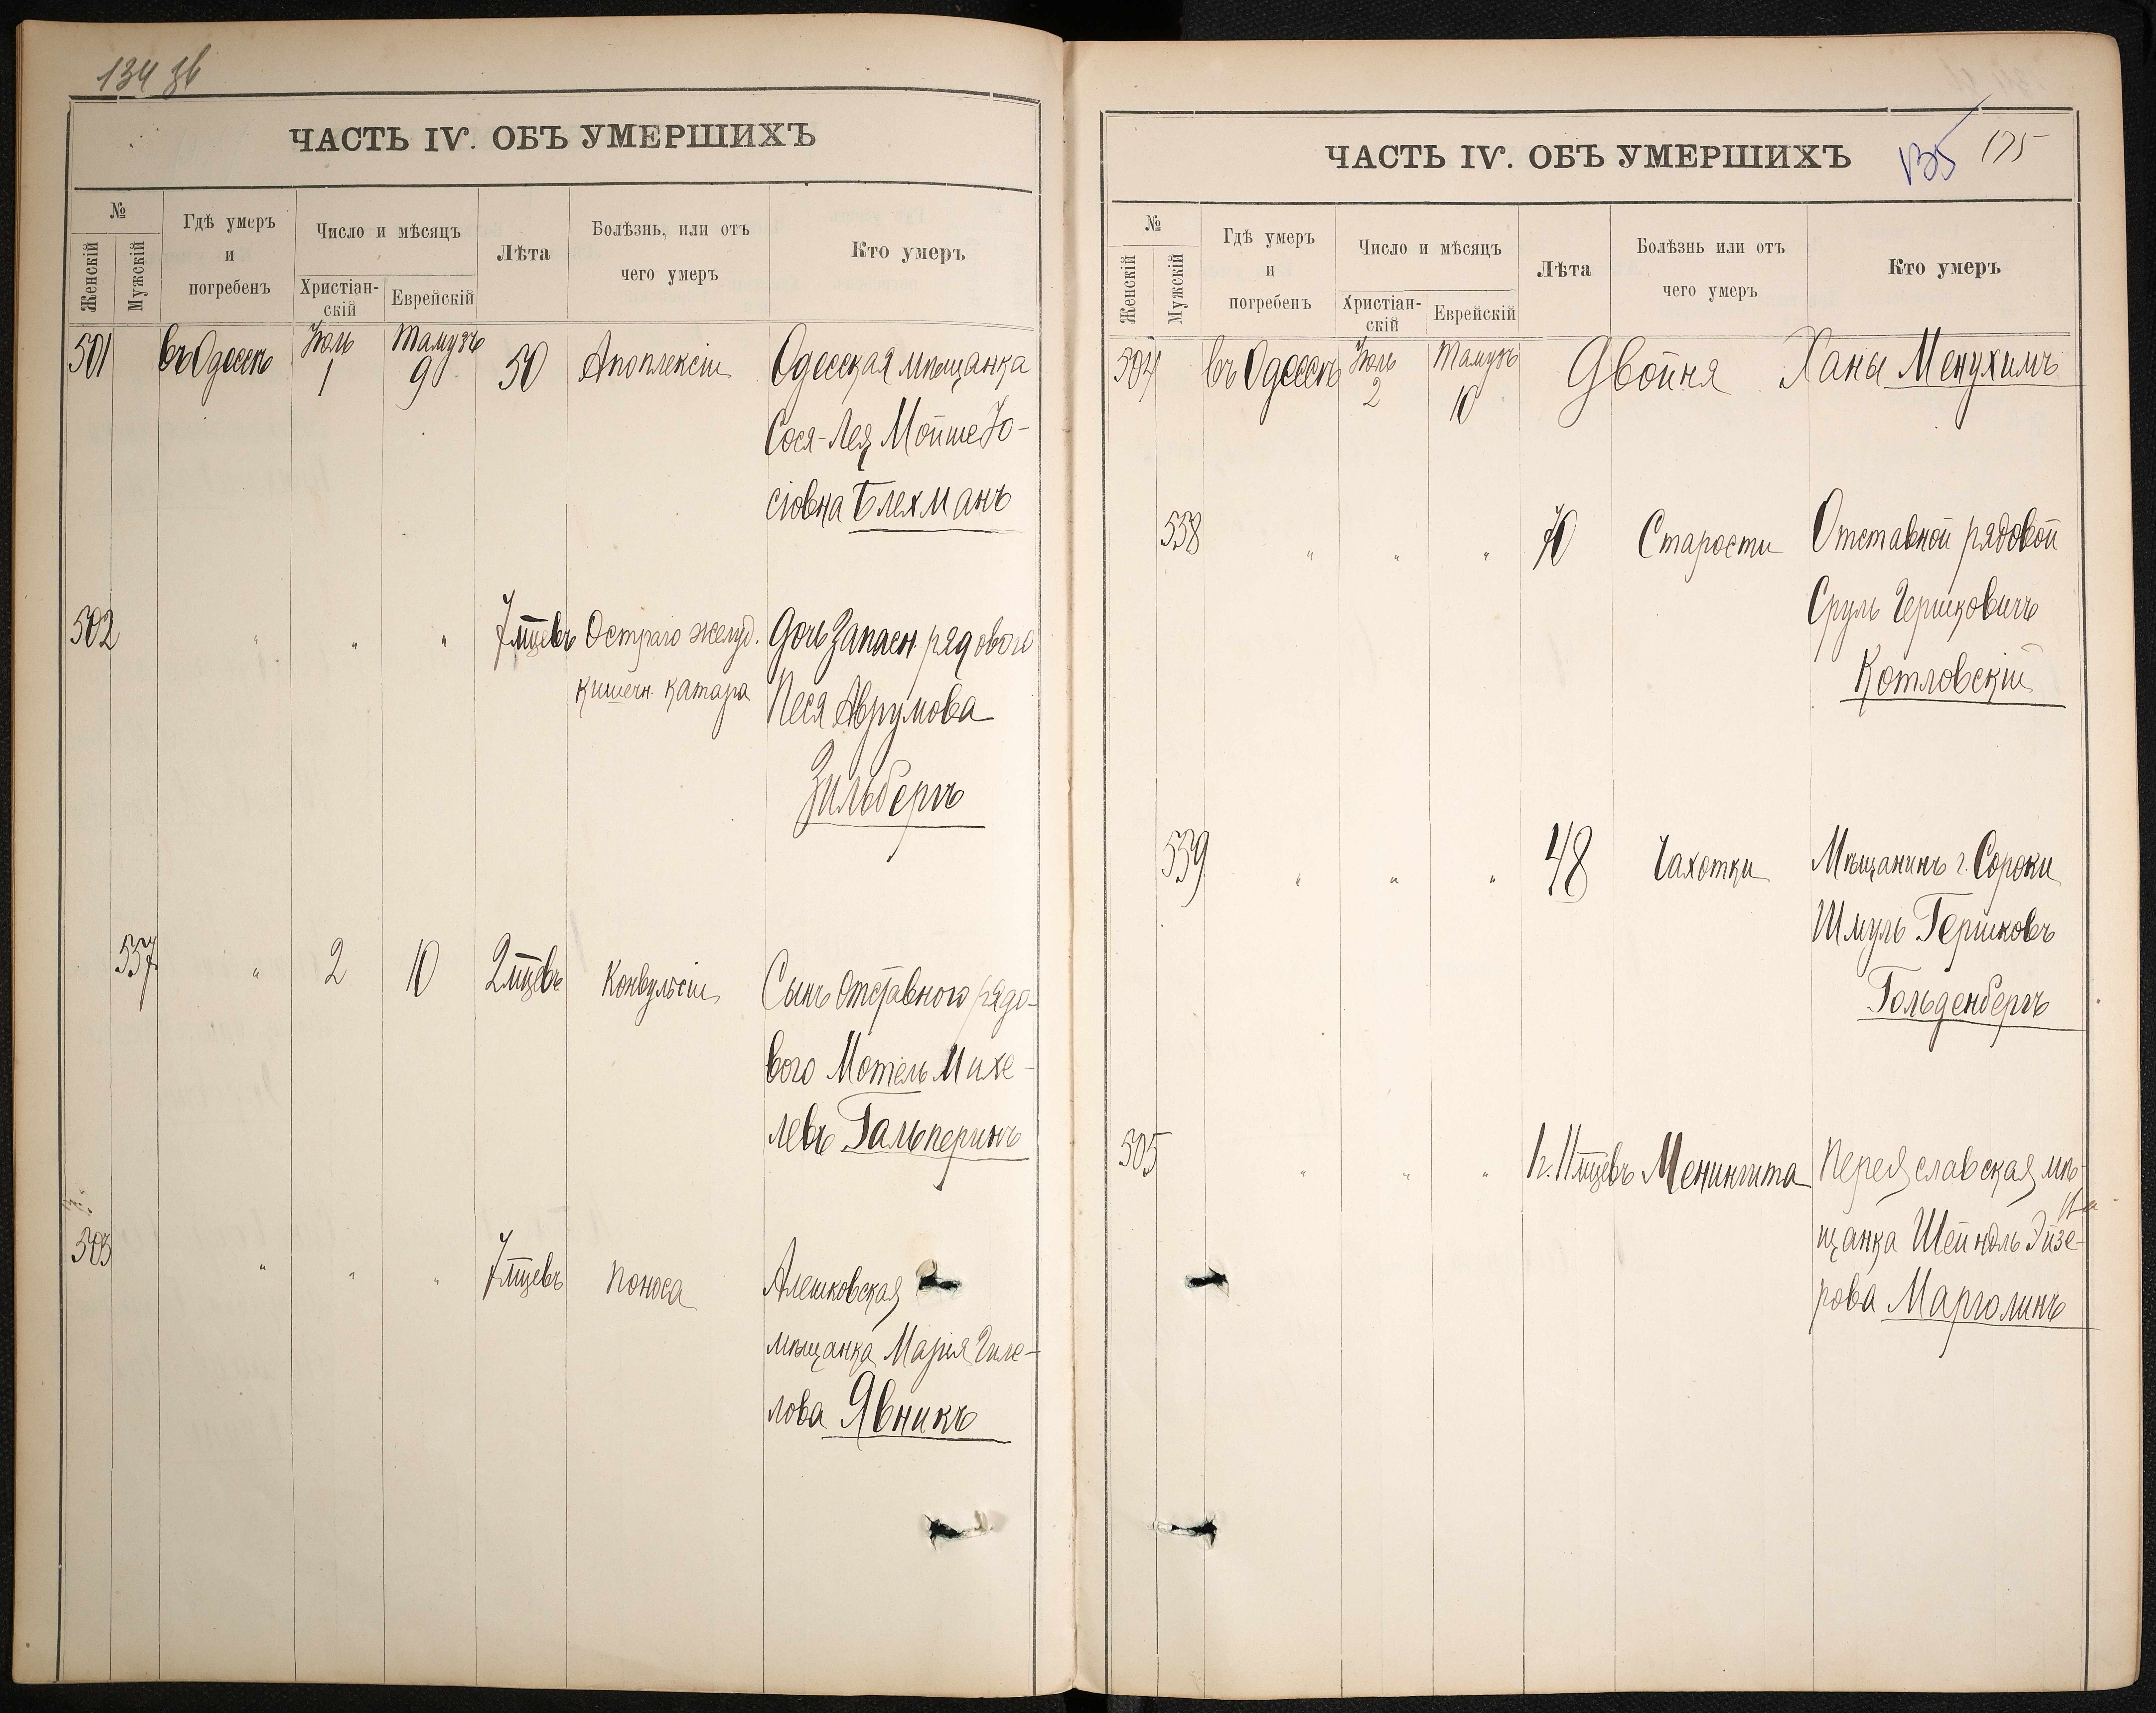 134 зв
ЧАСТЬ IV. ОБЪ УМЕРШИХЪ
№
Женскій
Мужскій
Гдѣ умеръ
и
погребенъ
Число и мѣсяцъ
Христіан-
скій
Еврейскій
Лѣта
Болѣзнь, или отъ
чего умеръ
Кто умеръ
501 въ Одессѣ Іюль 1 Тамузъ 9 50 Апоплексіи Одесская мѣщанка
Сося-Лея Мойше Іо-
сіовна Блехманъ
502 " " " 7 мцевъ Остраго желуд. Дочь запасн. рядового
кишечн. катара Песя Аврумова
Зильбергъ
537 " 2 10 2 мцевъ Конвульсіи Сынъ отставного рядо-
вого Мотель Михе-
левъ Гальперинъ
503 " " " 7 мцевъ Поноса Алешковская
мѣщанка Марія Гиле-
лова Явникъ
ЧАСТЬ IV. ОБЪ УМЕРШИХЪ
135 135
№
Женскій
Мужскій
Гдѣ умеръ
и
погребенъ
Число и мѣсяцъ
Христіан-
скій
Еврейскій
Лѣта
Болѣзнь или отъ
чего умеръ
Кто умеръ
504 въ Одессѣ Іюль 2 Тамузъ 10 Двойня Ханы Менухимъ
538 " " " 70 Старости Отставной рядовой
Сруль Гершковичъ
Котловскій
539 " " " 48 Чахотки Мѣщанинъ г. Сороки
Шмуль Гершковъ
Гольденбергъ
505 " " " 1 г. 11 мцевъ Менингита Переяславская мѣ-
щанка Шейндль Эйзе-
рова Марголинъ